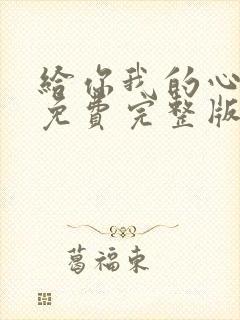 給你我的心
免費完整版
葛福東